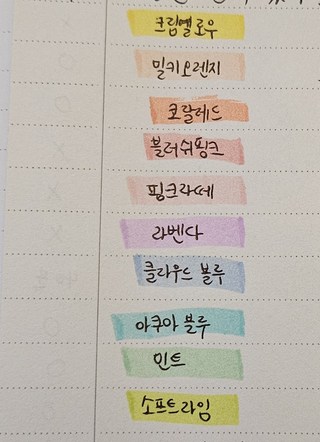 크림옐로우
밀키오렌지
코랄레드
블러쉬핑크
핑크라떼
라벤다
클라우드 블루
아쿠아 블루
민트
소프트라임